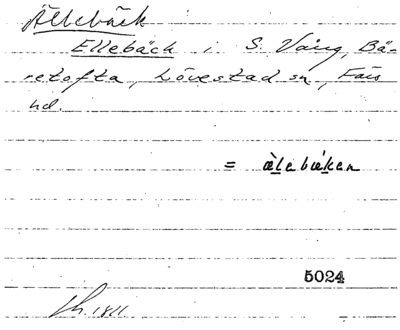 Ällebäck
Ellebäck i S. Vång, Bä-
retofta, Lövestad sn, Färs
hd.
= ælebækan
5024
1811